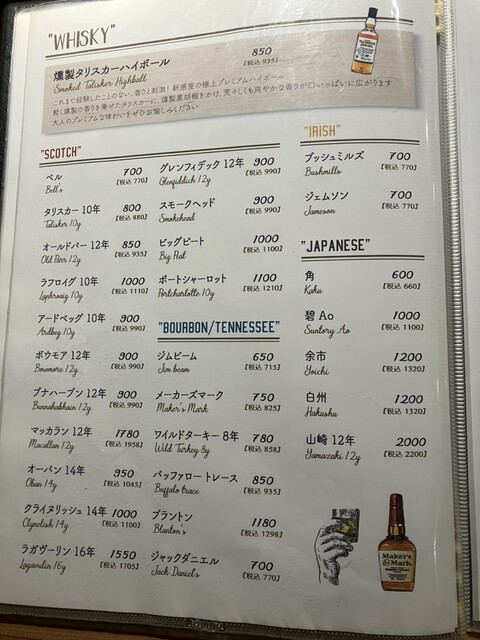 "WHISKY"
燻製タリスカーハイボール 850
Smoked Talisker Highball [税込 935]
これまで経験したことのない、香りと刺激!新感覚の極上プレミアムハイボール
軽く燻製の香りを乗せたタリスカーに、燻製黒胡椒をかけ、荒々しくも爽やかな香りが口いっぱいに広がります
大人のプレミアムな味わいをぜひお愉しみください
"SCOTCH"
ベル 700
Bell's [税込 770]
タリスカー 10年 800
Talisker 10y [税込 880]
オールドパー 12年 850
Old Parr 12y [税込 935]
ラフロイグ 10年 1000
Laphroaig 10y [税込 1110]
アードベッグ 10年 900
Ardbeg 10y [税込 990]
ボウモア 12年 900
Bowmore 12y [税込 990]
ブナハーブン 12年 900
Bunnahabhain 12y [税込 990]
マッカラン 12年 1780
Macallan 12y [税込 1958]
オーバン 14年 950
Oban 14y [税込 1045]
クライヌリッシュ 14年 1000
Clynelish 14y [税込 1100]
ラガヴーリン 16年 1550
Lagavulin 16y [税込 1705]
グレンフィデック 12年 900
Glenfiddich 12y [税込 990]
スモークヘッド 900
Smokehead [税込 990]
ビッグピート 1000
Big Peat [税込 1100]
ポートシャーロット 1100
Portcharlotte 10y [税込 1210]
"BOURBON/TENNESSEE"
ジムビーム 650
Jim beam [税込 715]
メーカーズマーク 750
Maker's Mark [税込 825]
ワイルドターキー 8年 780
Wild Turkey 8y [税込 858]
バッファロー トレース 850
Buffalo trace [税込 935]
ブラントン 1180
Blanton's [税込 1298]
ジャックダニエル 700
Jack Daniel's [税込 770]
"IRISH"
ブッシュミルズ 700
Bushmills [税込 770]
ジェムソン 700
Jameson [税込 770]
"JAPANESE"
角 600
Kaku [税込 660]
碧 Ao 1000
Suntory Ao [税込 1100]
余市 1200
Yoichi [税込 1320]
白州 1200
Hakushu [税込 1320]
山崎 12年 2000
Yamazaki 12y [税込 2200]
Maker's
Mark